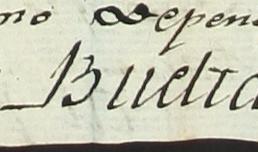 mo Depen
Buelta